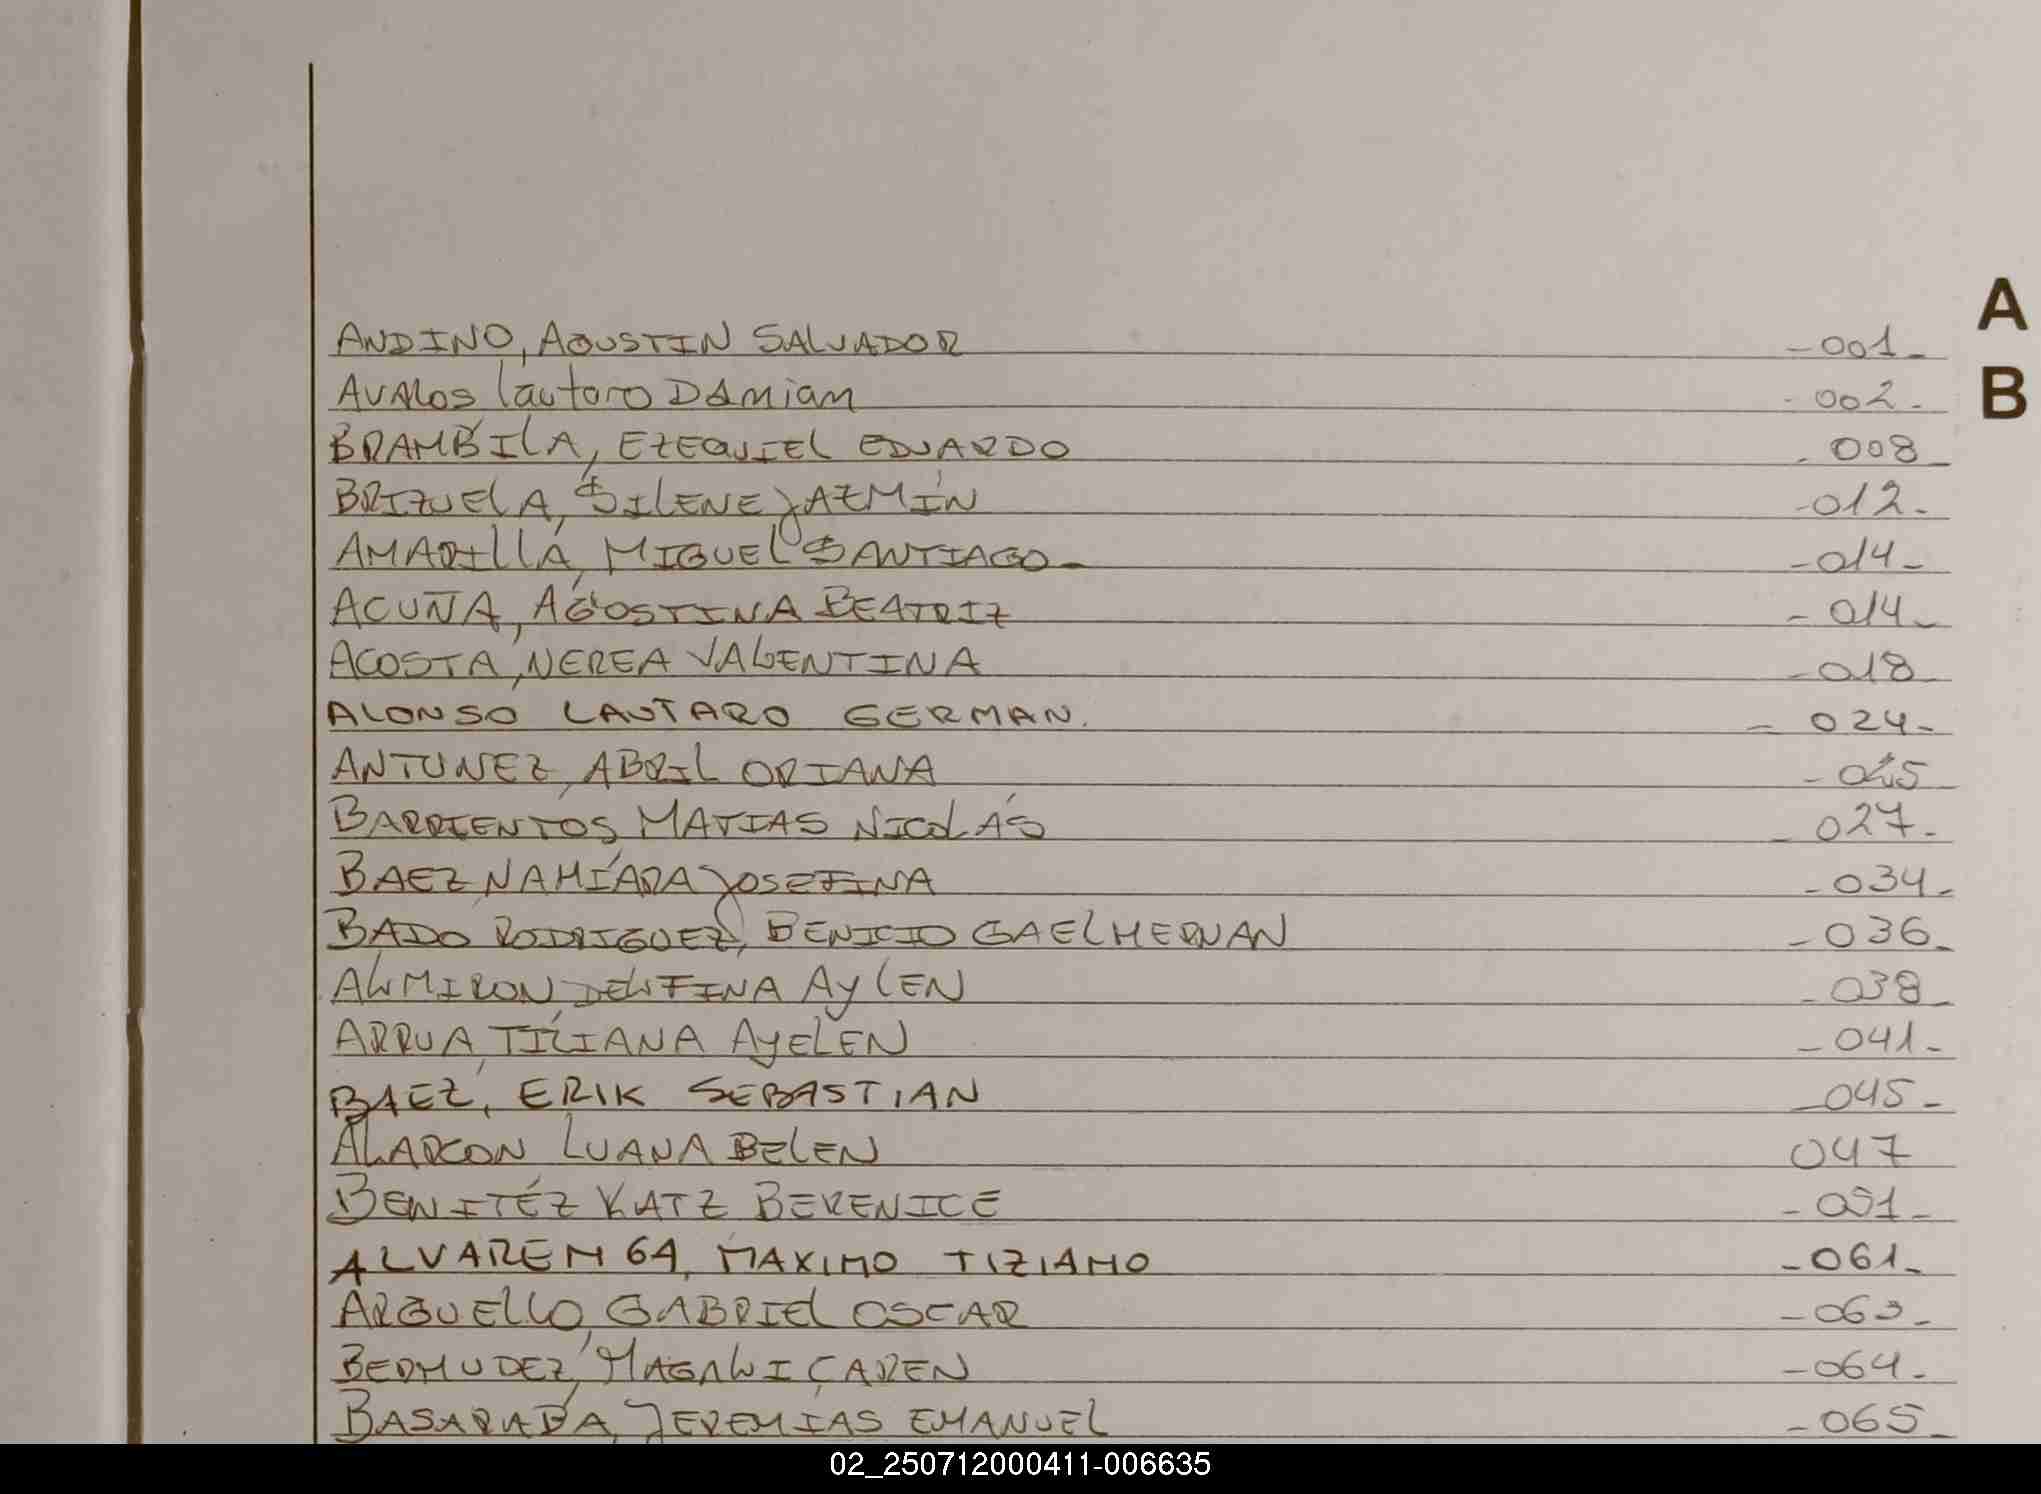 A
B
ANDINO, AGUSTIN SALVADOR -001-
AVALOS Lautaro DAMIAN -002-
BRAMBILA, EZEQUIEL EDUARDO -008-
BRIZUELA, SILENE JAZMÍN -012-
AMARILLA, MIGUEL SANTIAGO- -014-
ACUÑA, AGOSTINA BEATRIZ -014-
ACOSTA, NEREA VALENTINA -018-
ALONSO LAUTARO GERMAN. -024-
ANTUNEZ, ABRIL ORIANA -025
BARRIENTOS, MATIAS NICOLÁS -027-
BAEZ, NAHIARA JOSEFINA -034-
BADO RODRIGUEZ, BENICIO GAEL HERNAN -036-
ALMIRON, DELFINA AYLEN -038-
ARRUA, TIZIANA AYELEN -041-
BAEZ, ERIK SEBASTIAN -045-
ALARCON LUANA BELEN 047
BENITEZ KATZ BERENICE -051-
MAXIMO TIZIANO -061-
ARGUELLO, GABRIEL OSCAR -063-
BERMUDEZ, MAGALI CAREN -064-
BASARABA, JEREMIAS EMANUEL -065-
02_250712000411-006635